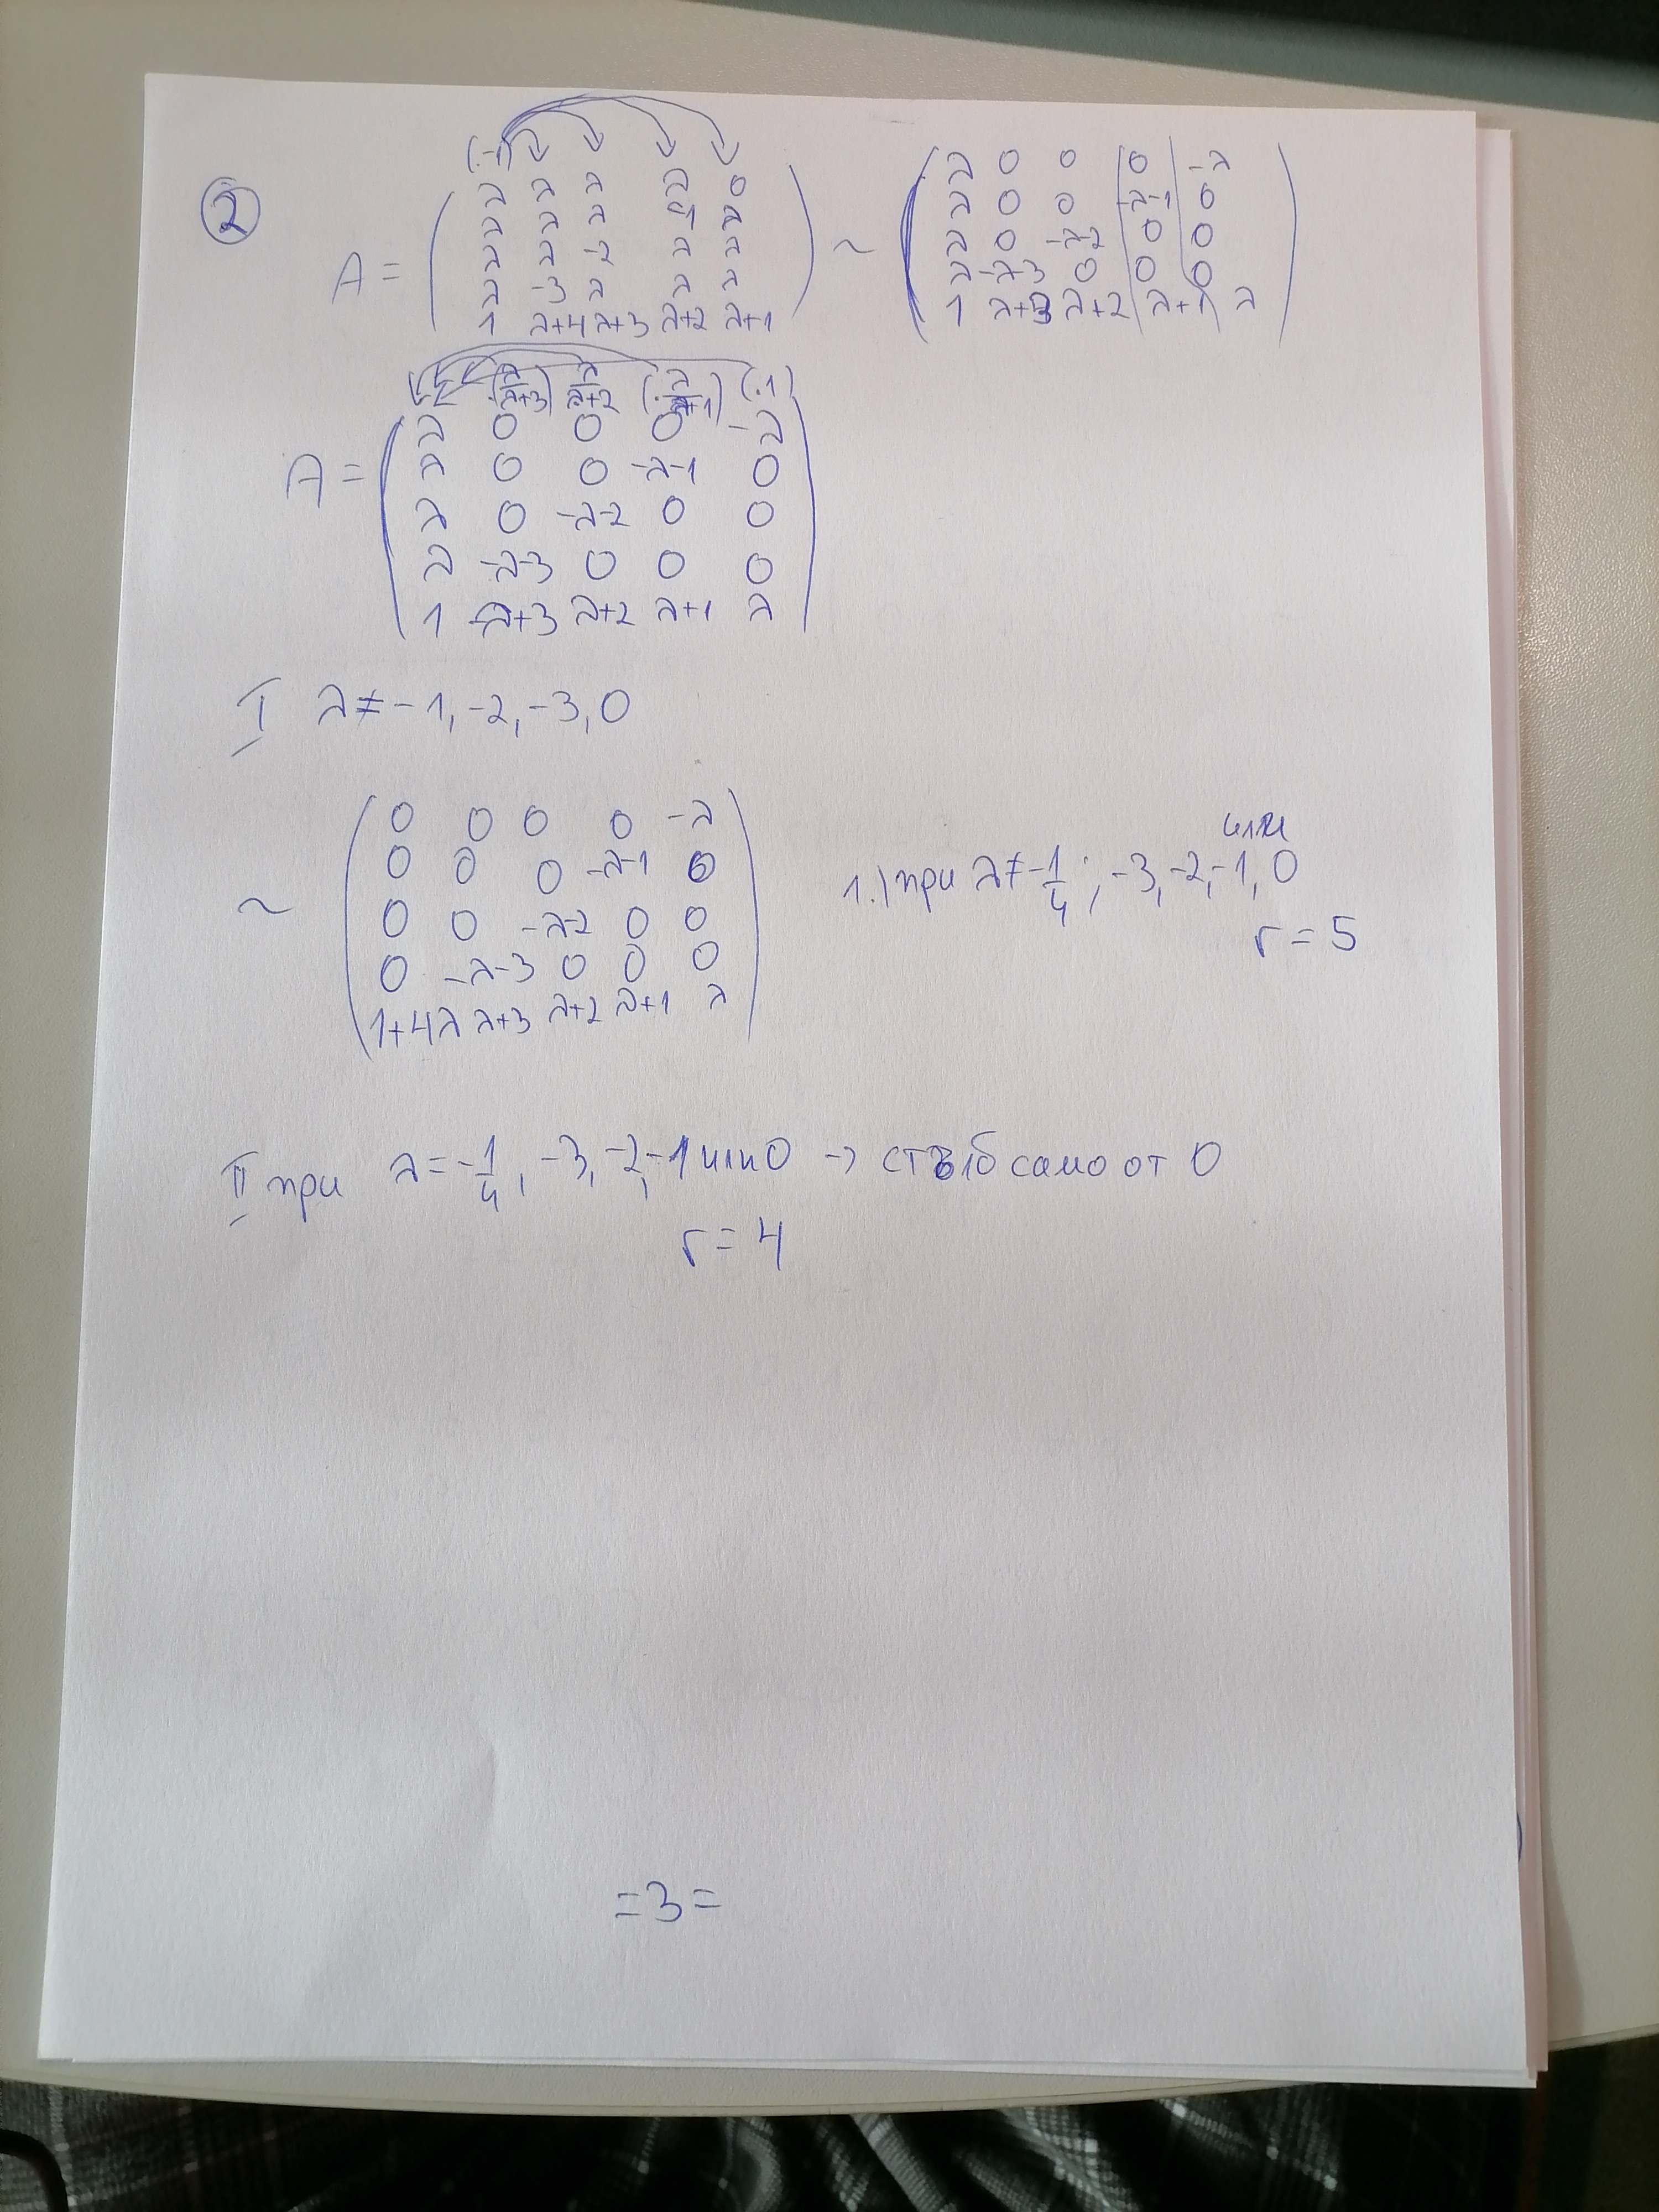 2
(·-1)
A = ( λ λ λ λ 0 ) ~ ( λ 0 0 0 -λ )
( λ λ λ -1 λ ) ( λ 0 0 -λ-1 0 )
( λ λ -2 λ λ ) ( λ 0 -λ-2 0 0 )
( λ -3 λ λ λ ) ( λ -λ-3 0 0 0 )
( 1 λ+4 λ+3 λ+2 λ+1 ) ( 1 λ+3 λ+2 λ+1 λ )
(·λ/λ+3) λ/λ+2 (·λ/λ+1) (·1)
A = ( λ 0 0 0 -λ )
( λ 0 0 -λ-1 0 )
( λ 0 -λ-2 0 0 )
( λ -λ-3 0 0 0 )
( 1 λ+3 λ+2 λ+1 λ )
I λ ≠ -1, -2, -3, 0
~ ( 0 0 0 0 -λ )
( 0 0 0 -λ-1 0 )
( 0 0 -λ-2 0 0 )
( 0 -λ-3 0 0 0 )
( 1+4λ λ+3 λ+2 λ+1 λ )
или
1.) при λ ≠ -1/4; -3, -2, -1, 0
r = 5
II при λ = -1/4, -3, -2, -1 или 0 → стълб само от 0
r = 4
=3=